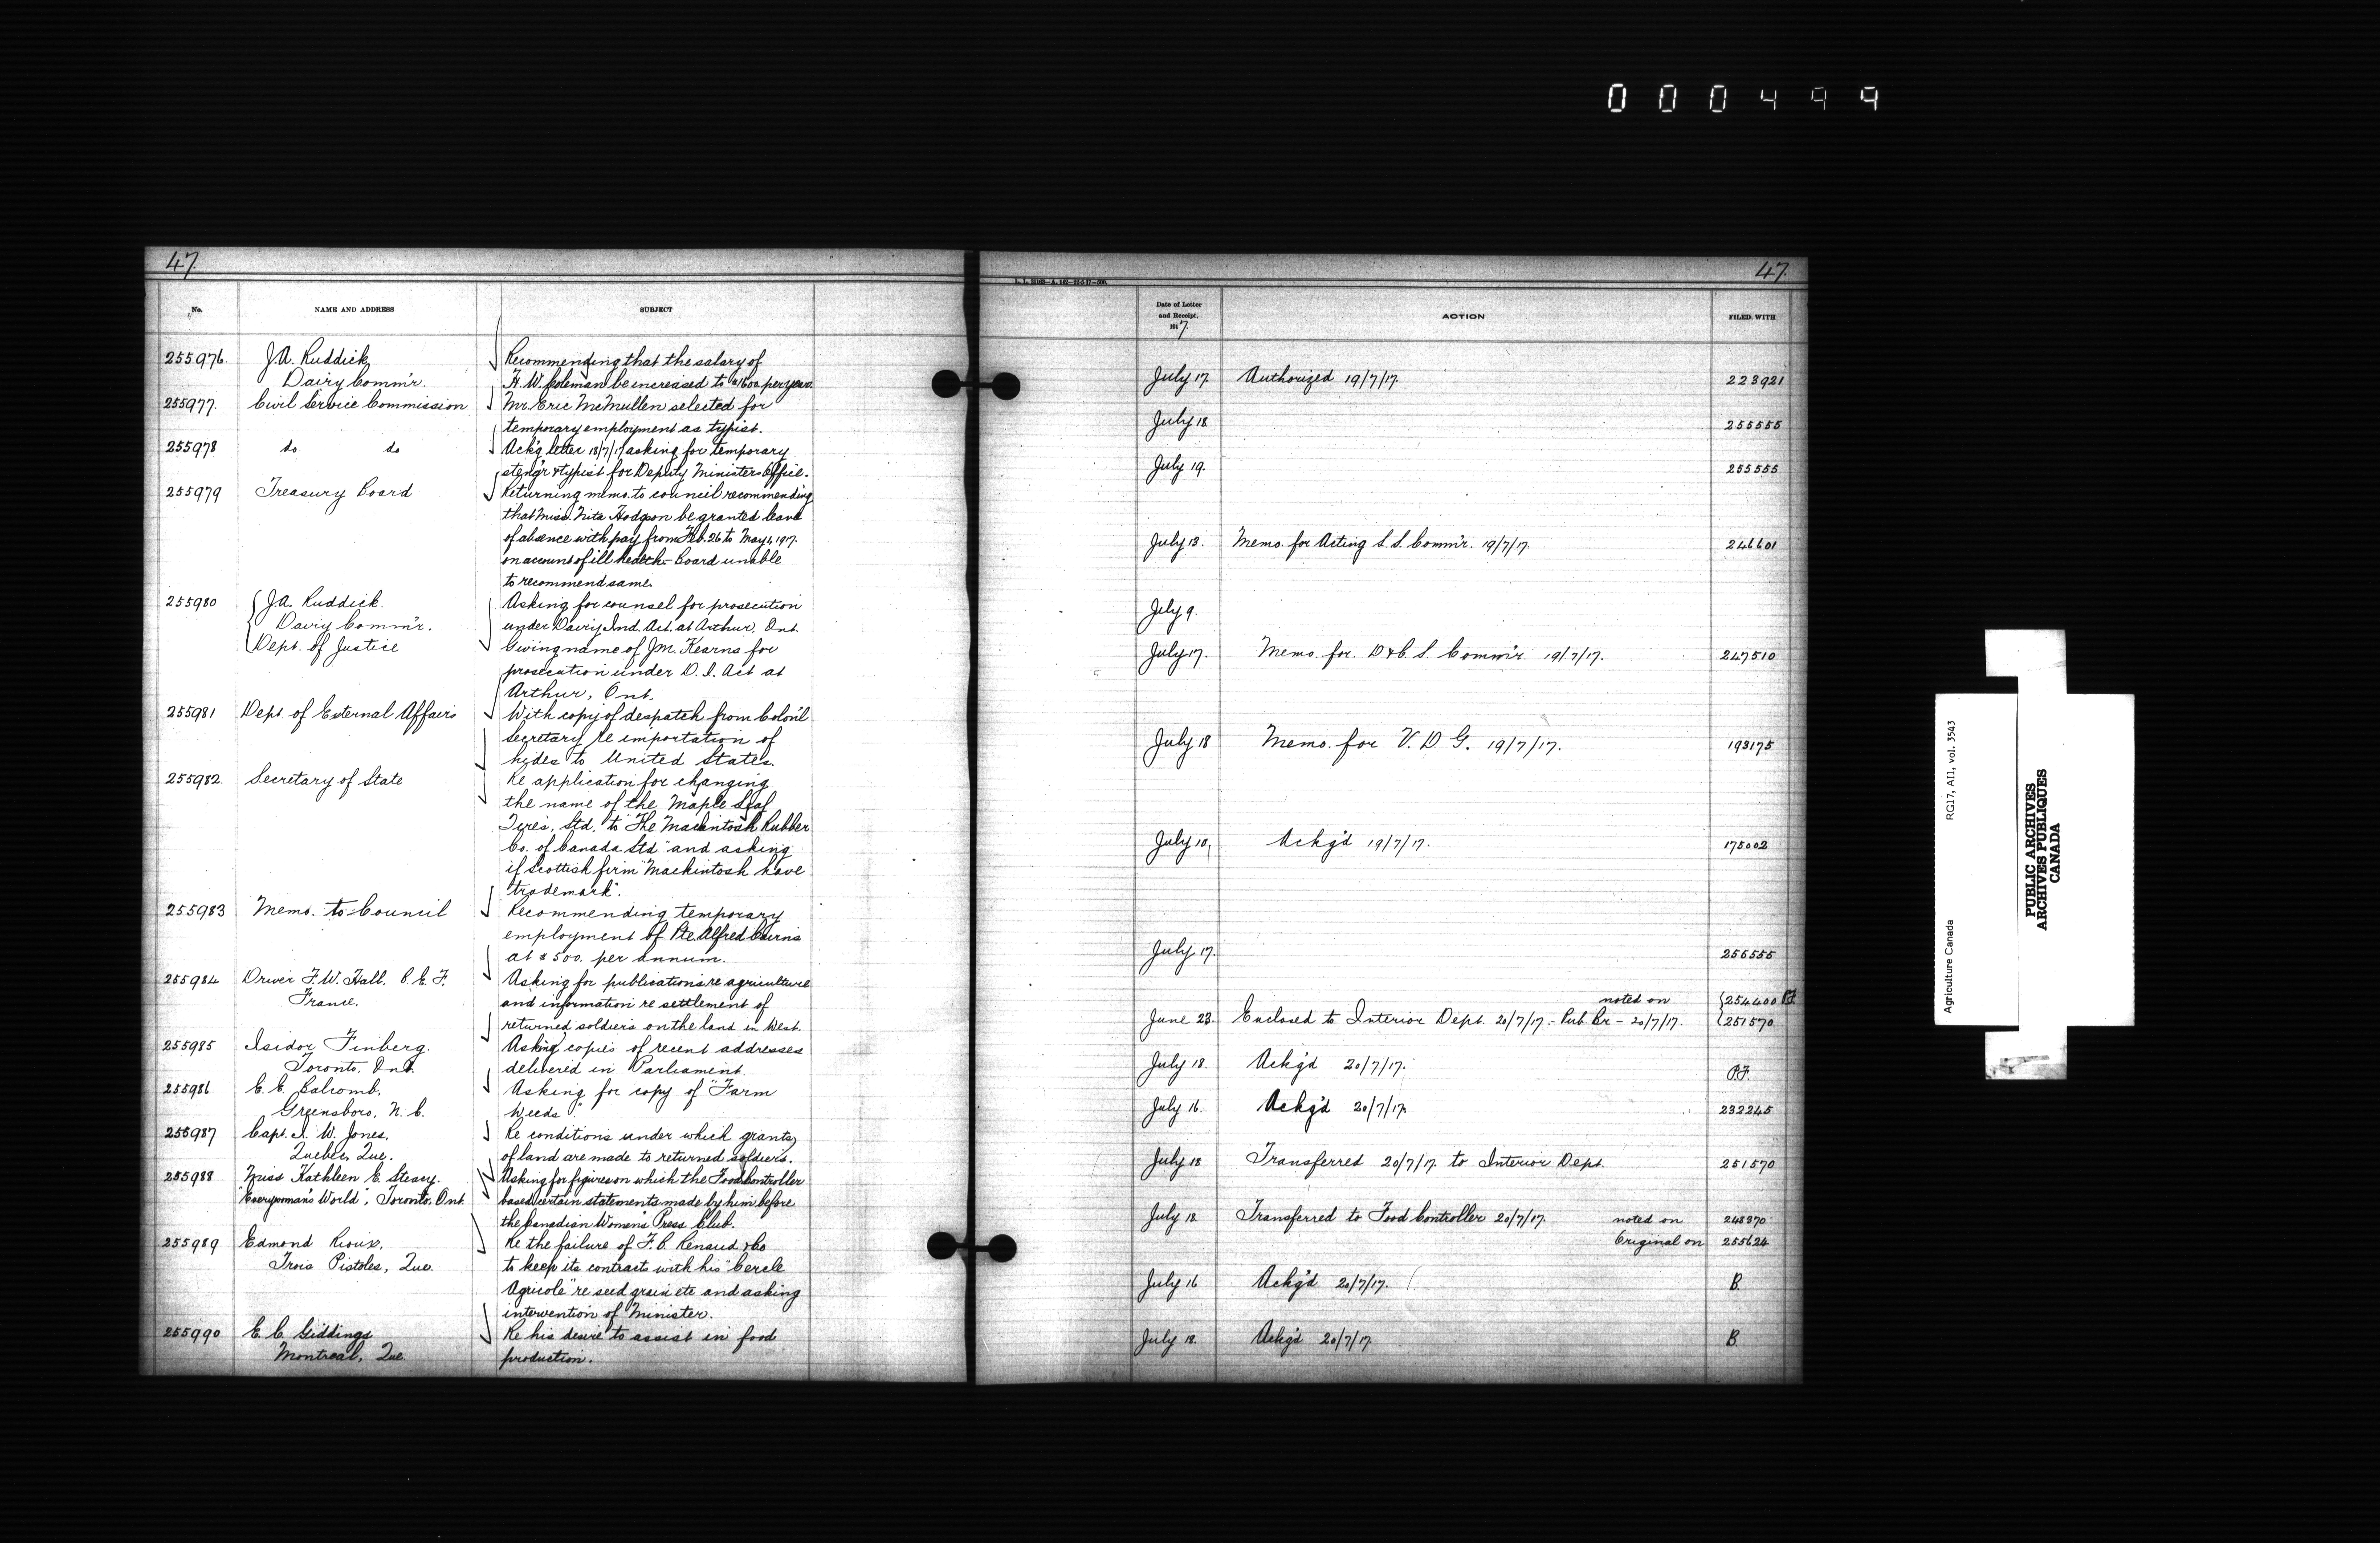 000499
47.
No.
NAME AND ADDRESS
SUBJECT
255976. J.A. Ruddick, Recommending that the salary of
Dairy Comm'r. H. W. Coleman be increased to $1600. per year.
255977. Civil Service Commission Mr. Eric McMullen selected for
temporary employment as typist.
255978 do do Ack'g letter 18/7/17 asking for temporary
steng'r & typist for Deputy Ministers Office.
255979 Treasury Board Returning memo. to council recommending
that Miss. Nita Hodgson be granted leave
of absence with pay from Feb. 26 to May 1, 1917.
on account of ill health - Board unable
to recommend same.
255980 J.A. Ruddick. Asking for counsel for prosecution
Dairy Comm'r. under Dairy Ind. Act. at Arthur, Ont.
Dept. of Justice Giving name of J.M. Kearns for
prosecution under D. I. Act at
Arthur, Ont.
255981 Dept. of External Affairs With copy of despatch from Colon'l
Secretary re importation of
hides to United States.
255982. Secretary of State Re application for changing
the name of the Maple Leaf
Tires, Ltd. to "The Mackintosh Rubber
Co. of Canada Ltd" and asking
if Scottish firm "Mackintosh have
"trademark".
255983 Memo. to Council Recommending temporary
employment of Pte Alfred Cairns
at $500. per annum.
255984 Driver F.W. Hall. C.E.F. Asking for publications re agriculture
France. and information re settlement of
returned soldiers on the land in West.
255985 Isidor Finberg. Asking copies of recent addresses
Toronto, Ont. delivered in Parliament.
255986 E. E. Balcomb. Asking for copy of "Farm
Greensboro, N. C. Weeds"
255987 Capt. A. W. Jones, Re conditions under which grants
Quebec, Que. of land are made to returned soldiers.
255988 Miss Kathleen E. Steacy. Asking for figures on which the Food Controller
"Everywoman's World", Toronto, Ont. based certain statements made by him before
the Canadian Women's Press Club.
255989 Edmond Rioux, Re the failure of F. C. Renaud & Co
Trois Pistoles, Que. to keep its contracts with his "Cercle
Agricole" re seed grain etc and asking
intervention of Minister.
255990 E. C. Giddings Re his desire to assist in food
Montreal, Que. production.
47.
Date of Letter
and Receipt.
1917.
ACTION
FILED WITH
July 17. Authorized 19/7/17. 223921
July 18 255555
July 19. 255555
July 13. Memo. for Acting S. S. Comm'r. 19/7/17. 246601
July 9.
July 17. Memo. for. D & C. S. Comm'r. 19/7/17. 247510
July 18 Memo. for V. D. G. 19/7/17. 193175
July 10, Ackg'd 19/7/17. 175002
July 17. 255555
noted on 254400
June 23. Enclosed to Interior Dept. 20/7/17. - Pub. Br - 20/7/17. 251570
July 18. Ackg'd 20/7/17. P.F.
July 16. Ackg'd 20/7/17. 232245
July 18 Transferred 20/7/17. to Interior Dept. 251570
July 18 Transferred to Food Controller 20/7/17. noted on 248370
Original on 255624
July 16 Ackg'd 20/7/17. B.
July 18. Ackg'd 20/7/17 B.
Agriculture Canada
RG17, AII, vol. 3543
PUBLIC ARCHIVES
ARCHIVES PUBLIQUES
CANADA